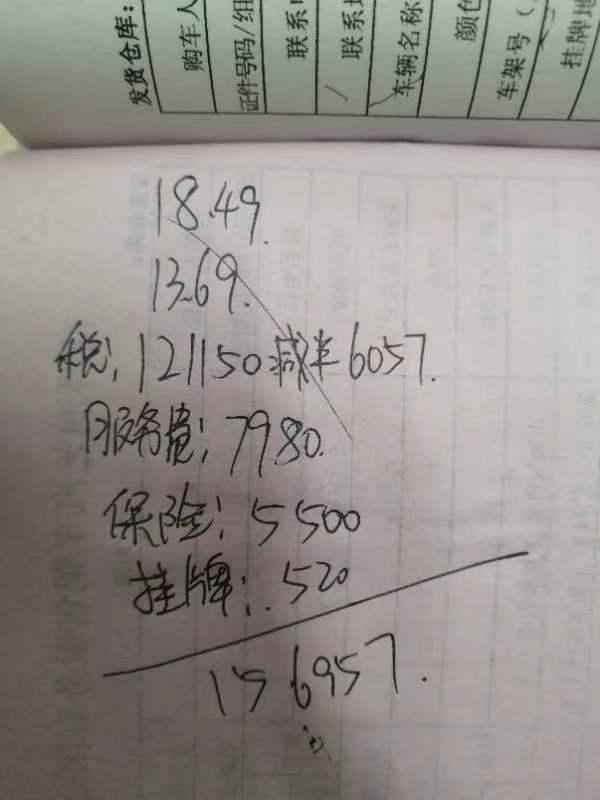 发货仓库:
购车人
证件号码/组
联系
联系
车辆名称
颜色
车架号(
挂牌地
18.49.
13.69.
税: 121150减半6057.
服务费: 7980.
保险: 5500
挂牌: 520
156957.